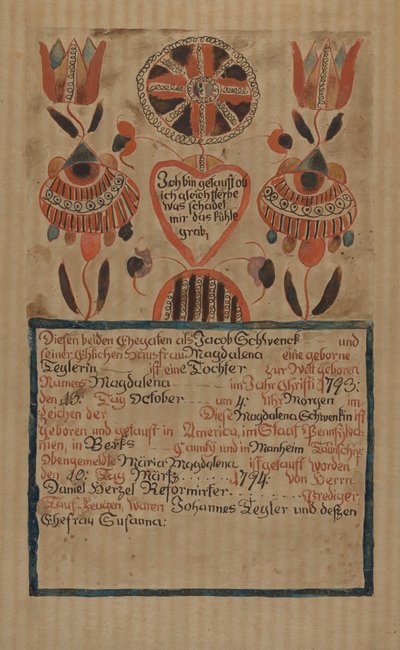 Ich bin getauft ob
ich gleich sterbe
was schadet
mir das kühle
grab,
Diesen beiden Ehegaten als Jacob Schvenck und
seiner Ehlichen Hausfrau Magdalena eine geborne
Teylerin ist eine Tochter zur Welt geboren
Namens Magdalena im Jahr Christi 1793:
den 10: Tag October um 4 Uhr Morgen im
Zeichen der Diese Magdalena Schwenkin ist
geboren und getauft in America, im Staat Pennsylva-
nien, in Berks Caunty und in Manheim Taunschip:
Obengemeldte Maria Magdalena ist getauft worden
den 10: Tag Märtz 1794: von Herrn
Daniel Herzel Reformirter Prediger
Tauf-Zeugen, waren Johannes Teyler und dessen
Ehefrau Susanna: